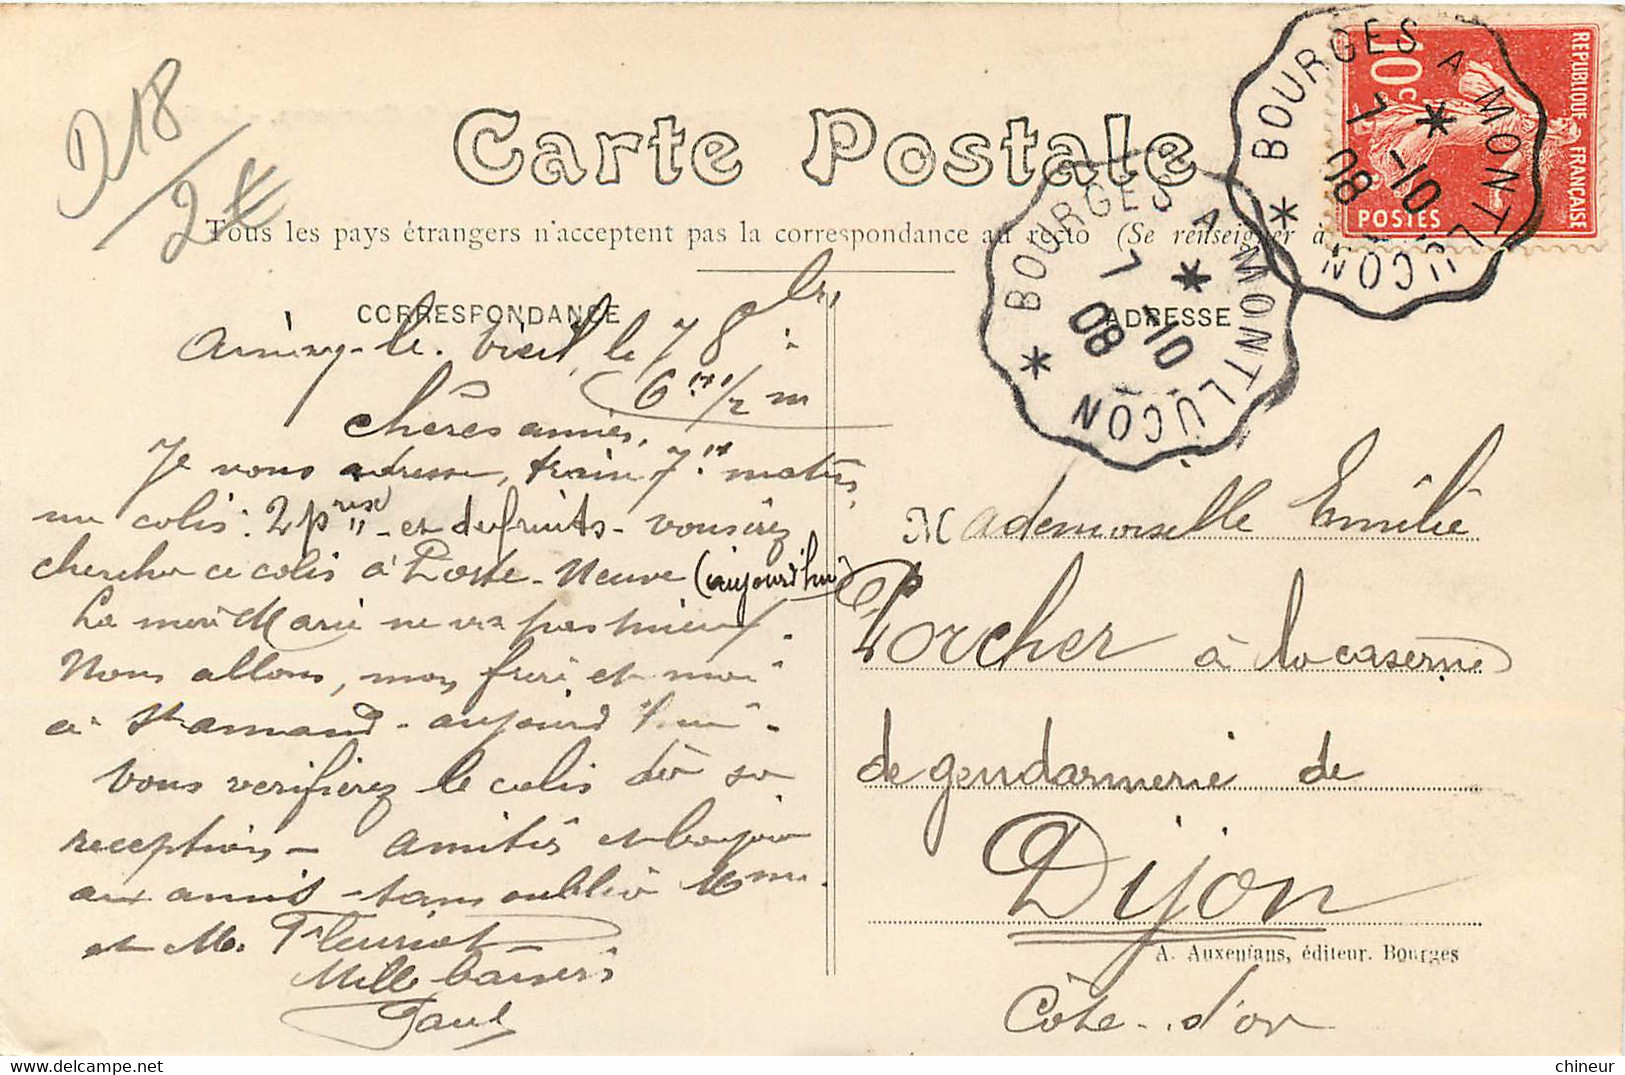 D18
2€
Carte Postale
Tous les pays étrangers n'acceptent pas la correspondance au recto (Se renseigner à
REPUBLIQUE FRANÇAISE
10c
POSTES
BOURGES A MONTLUÇON
7 -10
08
BOURGES A MONTLUÇON
7 -10
08
CORRESPONDANCE
ADRESSE
Ainay-le-Vieil, le 7 8bre
6 h 1/2 m
Chères amies,
Je vous adresse, train 7h matin,
un colis: 2 p et de fruits - vous irez
chercher ce colis à Porte-Neuve (aujourd'hui)
La mère Marie ne va pas mieux.
Nous allons, mon frère et moi
à St amand - aujourd'hui -
Vous vérifierez le colis dès sa
réception - amitiés et bonjour
aux amis - sans oublier Mme
et M. Fleuriot -
Mille baisers
Paul
Mademoiselle Emilie
Porcher à la caserne
de gendarmerie de
Dijon
A. Auxenfans, éditeur. Bourges
Côte-d'or
chineur